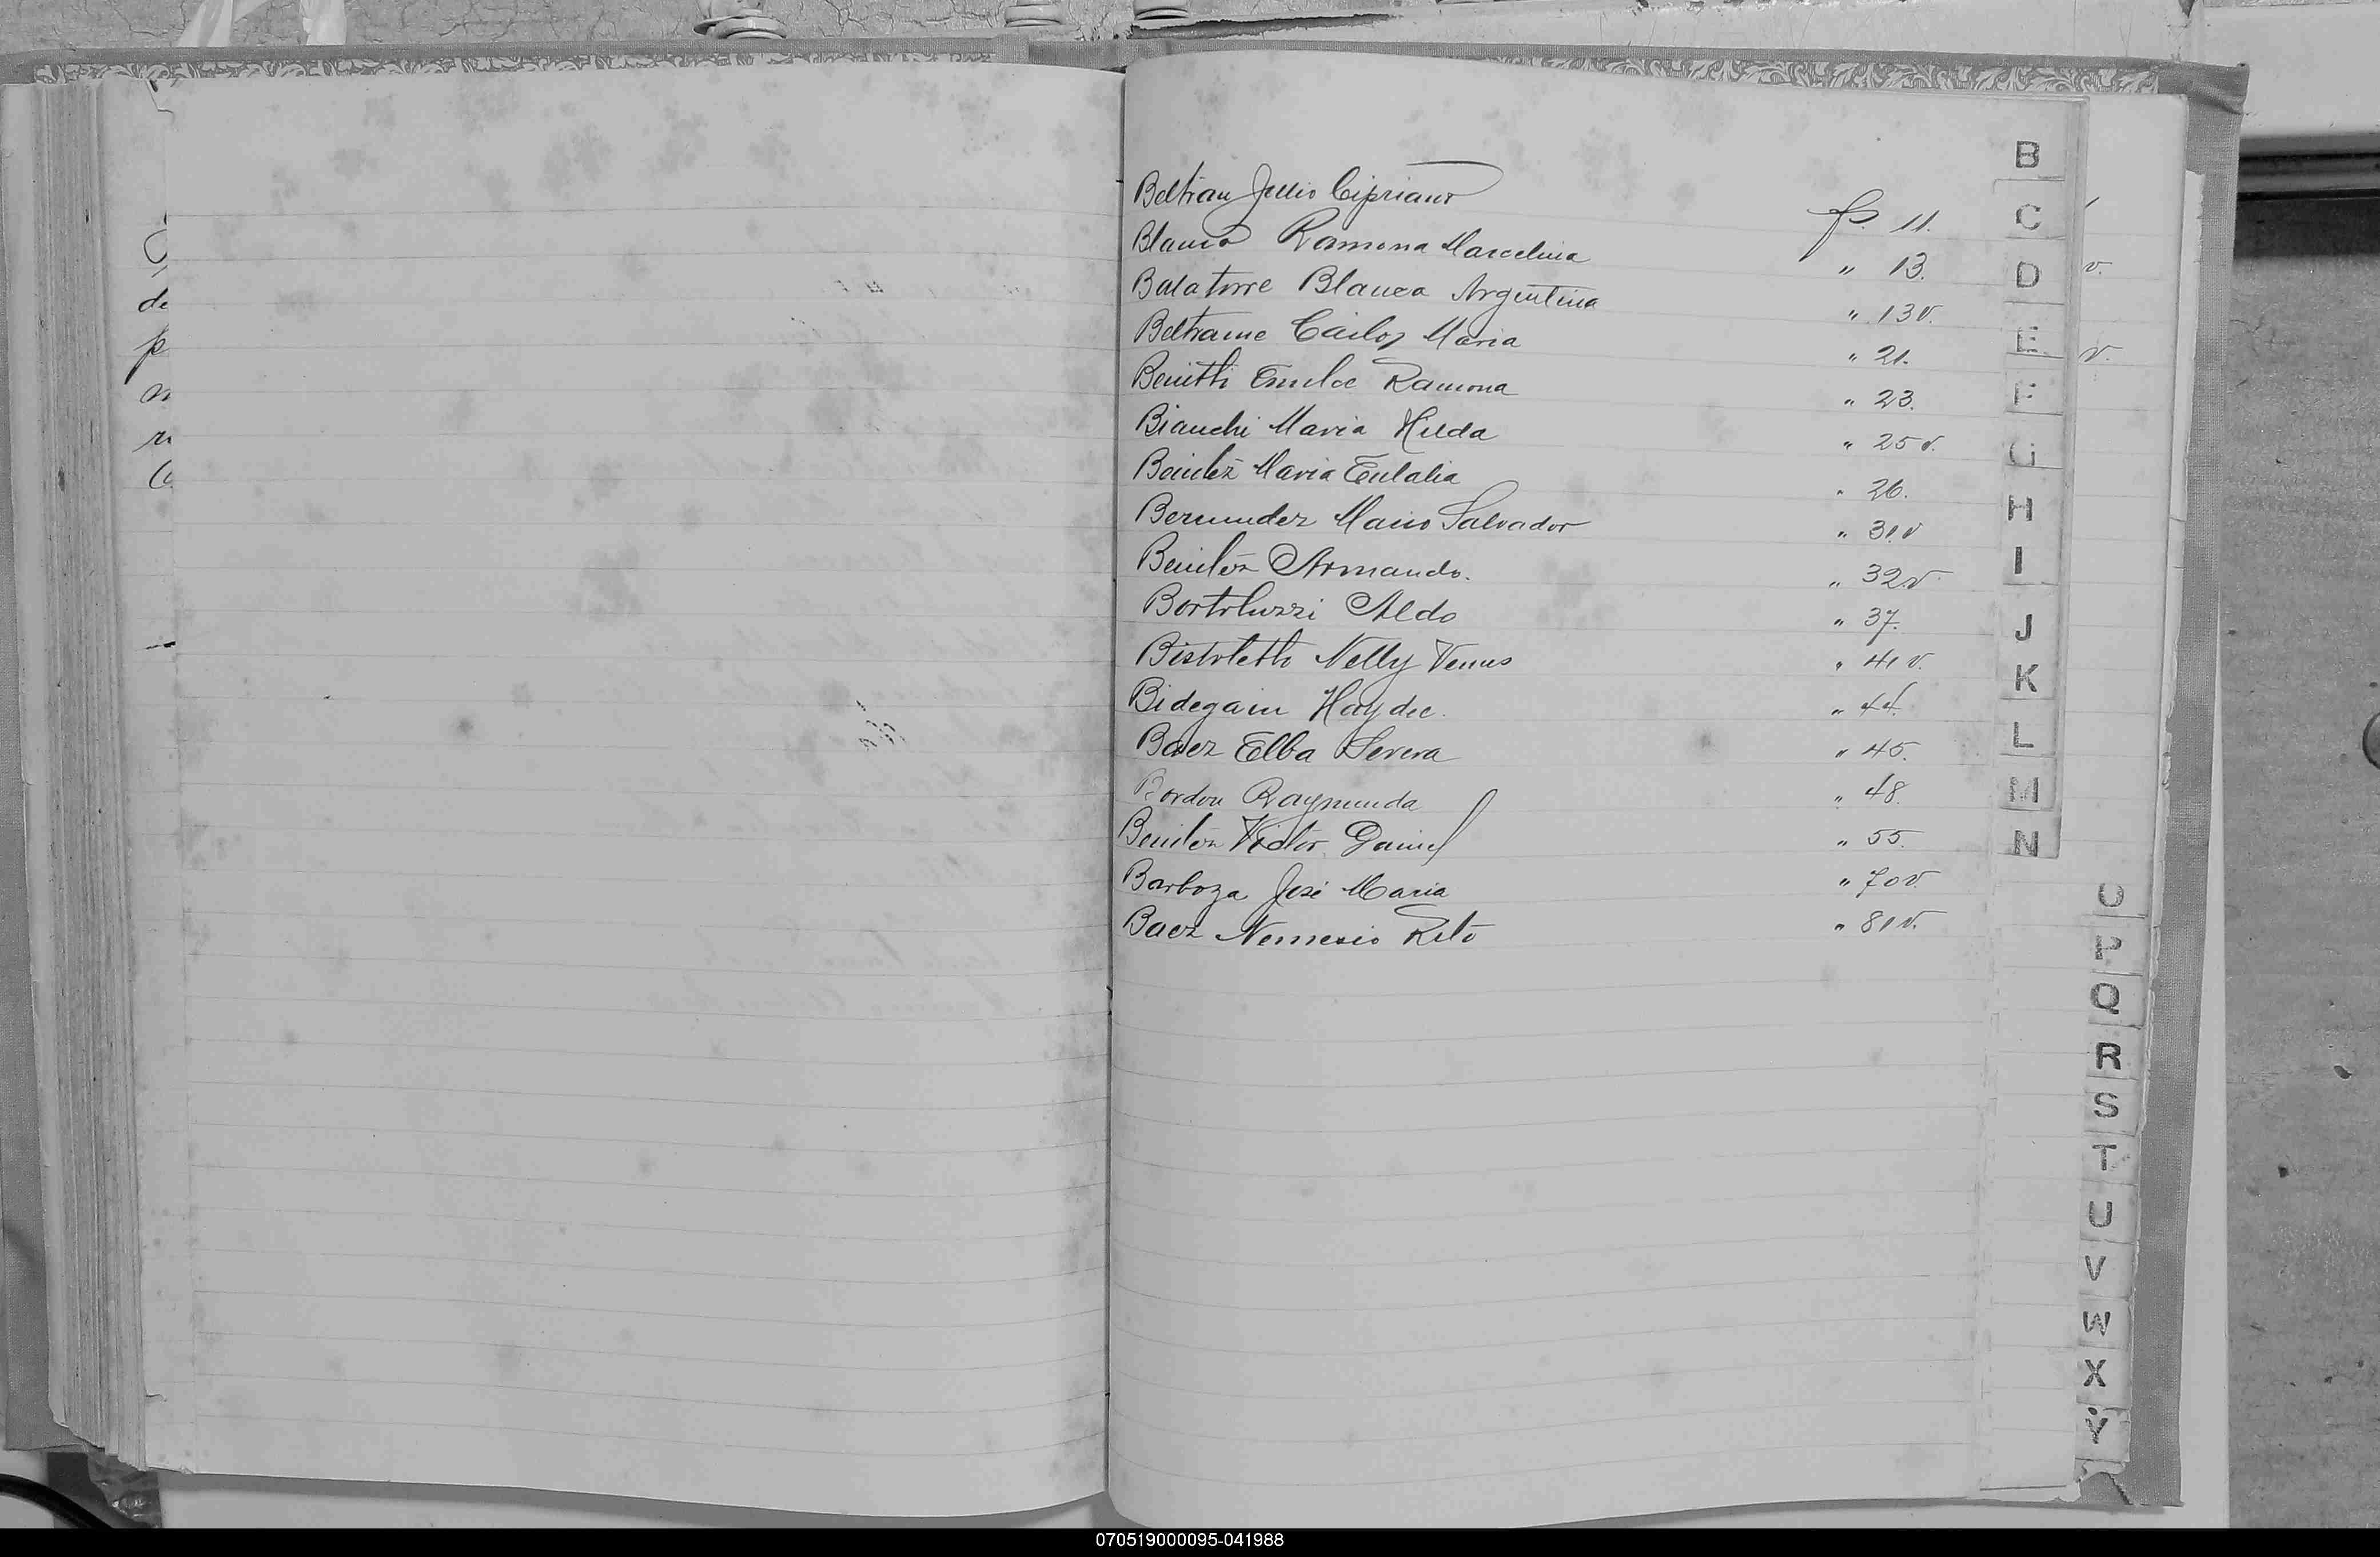 Beltran Julio Cipriano fs. 11.
Blanco Ramona Marcelina " 13.
Balatorre Blanca Argentina " 13v.
Beltrame Carlos Maria " 21.
Benitti Emilce Ramona " 23.
Bianchi Maria Hilda " 25v.
Benitez Maria Eulalia " 26.
Bermudez Mario Salvador " 31v
Benitez Armando. " 32v
Bortoluzzi Aldo " 37.
Bistoletti Nelly Venus " 41v.
Bidegain Haydee. " 44.
Baez Elba Severa " 45.
Bordon Raymunda " 48.
Benitez Victor Daniel " 55.
Barboza José Maria " 70v.
Baez Nemesio Rito " 81v.
B
C
D
E
F
G
H
I
J
K
L
M
N
O
P
Q
R
S
T
U
V
W
X
Y
v.
v.
de
p
070519000095-041988